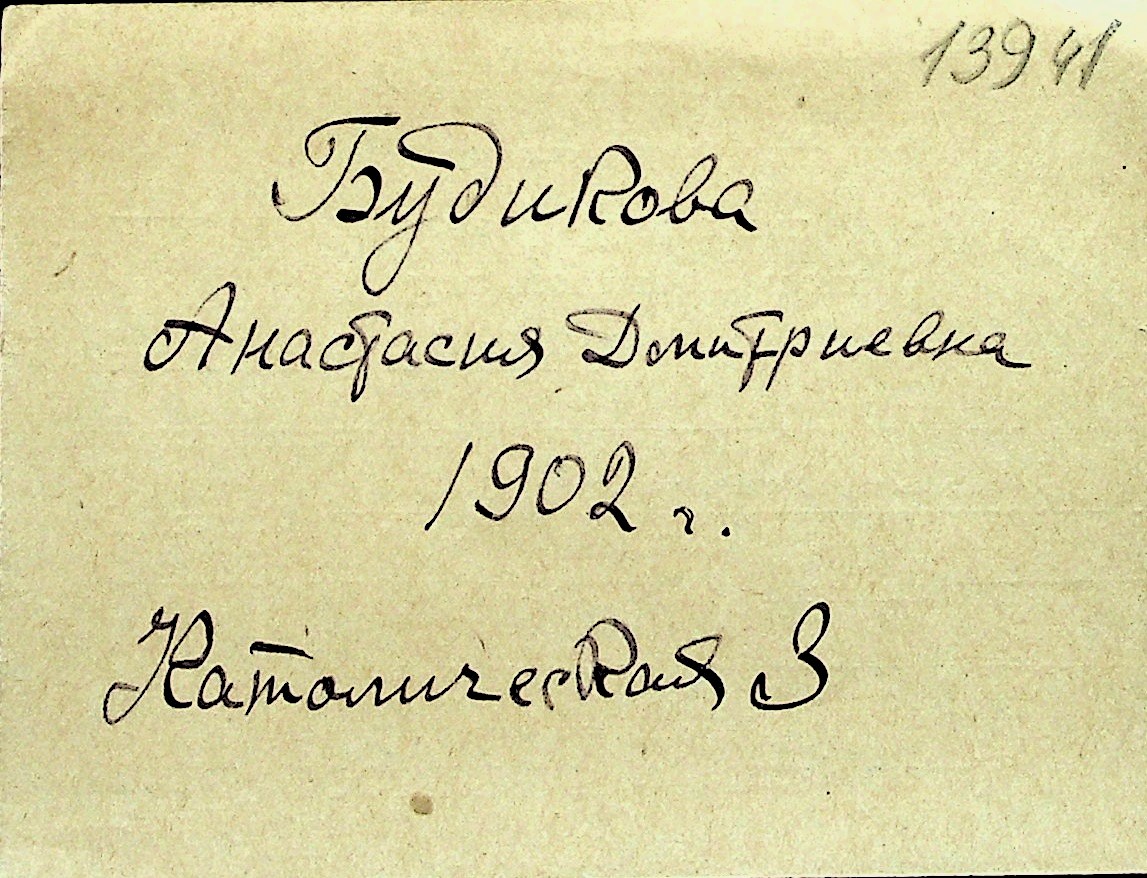 13941
Будикова
Анастасия Дмитриевна
1902 г.
Католическая 3